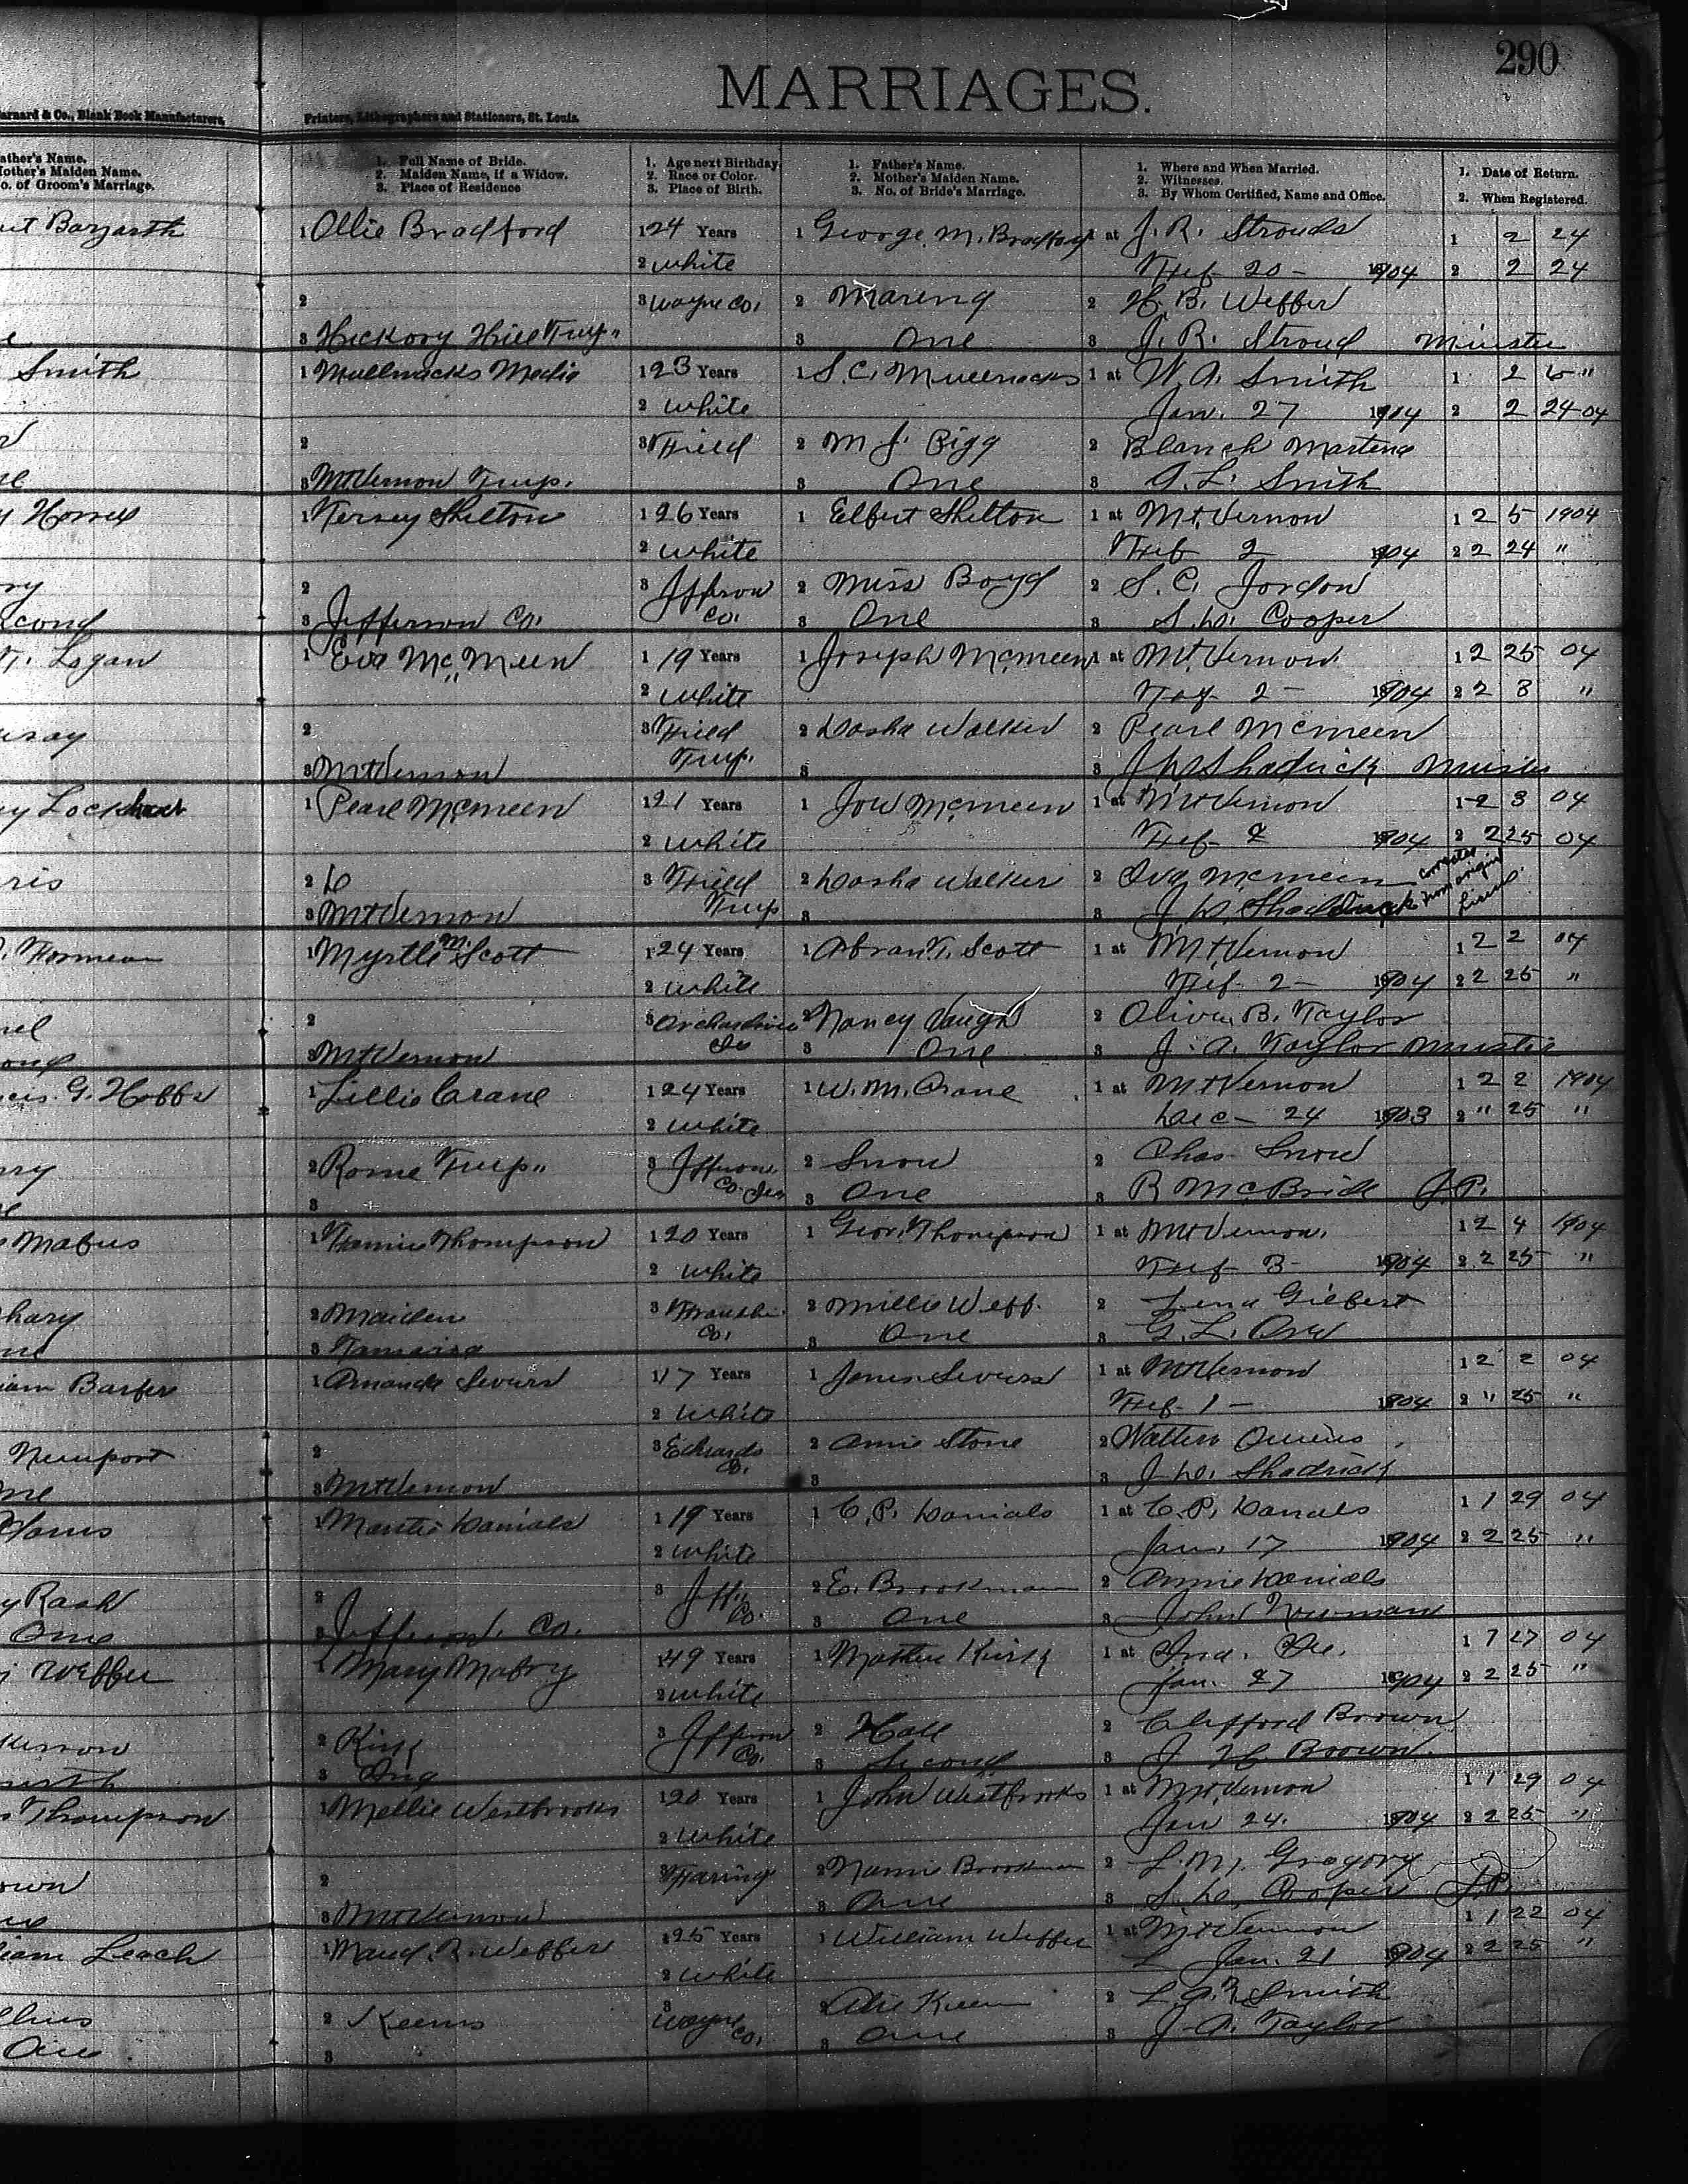 290
MARRIAGES.
arnard & Co., Blank Book Manufacturers,
Printers, Lithographers and Stationers, St. Louis.
ather's Name.
Mother's Maiden Name.
o. of Groom's Marriage.
1. Full Name of Bride.
2. Maiden Name, if a Widow.
3. Place of Residence
1. Age next Birthday.
2. Race or Color.
3. Place of Birth.
1. Father's Name.
2. Mother's Maiden Name.
3. No. of Bride's Marriage.
1. Where and When Married.
2. Witnesses.
3. By Whom Certified, Name and Office.
1. Date of Return.
2. When Registered.
1 Ollie Bradford 1 24 Years 1 George M. Bradford 1 at J. R. Strouds 1 2 24
2 White Feb 20 - 1904 2 2 24
2 3 Wayne Co. 2 Mareng 2 H. B. Webber
3 Hickory Hill Twp 3 One 3 J. R. Stroud Minister
Smith 1 Mullnacks Medie 1 23 Years 1 S. C. Mullnacks 1 at W. A. Smith 1 2 6 "
2 White Jan. 27 1904 2 2 24 04
2 3 Field 2 M J. Rigg 2 Blanch Marteng
3 Mt Vernon Twp. 3 One 3 A. L. Smith
1 Kersey Shelton 1 26 Years 1 Elbert Shelton 1 at Mt. Vernon 1 2 5 1904
2 White Feb 2 1904 2 2 24 "
2 3 Jefferson Co. 2 Miss Boyd 2 S. C. Jordon
cond 3 Jefferson Co. 3 One 3 S. D. Cooper
T. Logan 1 Eva McMeen 1 19 Years 1 Joseph McMeen 1 at Mt. Vernon 1 2 25 04
2 White 2 - 1904 2 2 3 "
2 3 Field Twp. 2 Dosha Walker 2 Pearl McMeen
3 Mt Vernon 3 3 J W Shadrick Minister
y Lockhart 1 Pearl McMeen 1 21 Years 1 Joe McMeen 1 at Mt Vernon 1 2 3 04
2 White Feb 2 1904 2 2 25 04
ris 2 Do 3 Field Twp 2 Dosha Walker 2 Eva McMeen
3 Mt Vernon 3 3 J. D. Shaddrick from original
1 Myrtle M. Scott 1 24 Years 1 Abran T. Scott 1 at Mt Vernon 1 2 2 04
2 White Feb 2 - 1904 2 2 25 "
2 3 2 Nancy Vaugh 2 Oliver B. Taylor
3 Mt Vernon 3 One 3 J. A. Taylor Minister
G. Hobbs 1 Lillie Crane 1 24 Years 1 W. M. Crane 1 at Mt Vernon 1 2 2 1904
2 White Dec - 24 1903 2 " 25 "
2 Rome Twp 3 Jefferson Co. 2 Snow 2 Chas Snow
3 3 One 3 R McBride J.P.
Mabus 1 Fannie Thompson 1 20 Years 1 Geo. Thompson 1 at Mt Vernon. 1 2 4 1904
2 White Feb 3 - 1904 2 2 25 "
2 Maiden 3 Franklin Co. 2 Millie Webb. 2 Lena Gilbert
3 Tamaroa 3 One 3 G. L. Ore
iam Barber 1 Amanda Severs 1 17 Years 1 James Severs 1 at Mt Vernon 1 2 2 04
2 White Feb 1 - 1904 2 " 25 "
Newport 2 3 Edwards Co. 2 Amie Stone 2 Walter Owens
3 Mt Vernon 3 3 J. D. Shadrick
1 Daniels 1 19 Years 1 C. P. Daniels 1 at C. P. Daniels 1 1 29 04
2 White Jan. 17 1904 2 2 25 "
y Rash 2 3 Jeff. Co. 2 E. Brookman 2 Annie Daniels
One 3 Jefferson Co. 3 One 3 John Newman
Webber 1 Mary Mabry 1 49 Years 1 Kirk 1 at Ina. Ill. 1 1 27 04
2 White Jan. 27 1904 2 2 25 "
2 Kirk 3 Jefferson Co. 2 Hall 2 Clifford Brown
3 Ina 3 Second 3 J. H. Brown.
Thompson 1 Mellie Westbrooks 1 20 Years 1 John Westbrooks 1 at Mt Vernon 1 1 29 04
2 White Jan 24. 1904 2 2 25 "
own 2 3 2 Nannie Brookman 2 L. M. Gregory
3 Mt Vernon 3 One 3 S. D. Cooper J.P.
liam Leach 1 Maud. R. Webber 1 25 Years 1 William Webber 1 at Mt Vernon 1 1 22 04
2 White Jan. 21 1904 2 2 25 "
2 Keens 3 Wayne Co. 2 Keen 2 Smith
One 3 3 One 3 J. A. Taylor